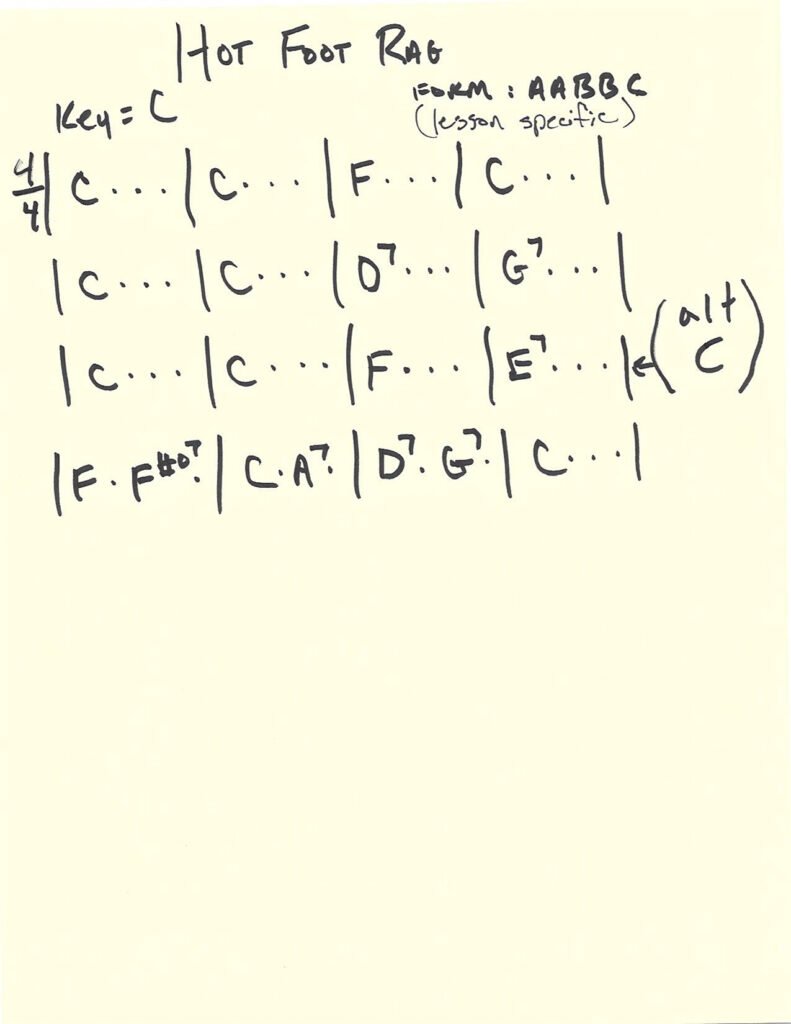 HOT FOOT RAG
FORM: AABBC
Key = C
(lesson specific)
4/4 | C . . . | C . . . | F . . . | C . . . |
| C . . . | C . . . | D7 . . . | G7 . . . |
| C . . . | C . . . | F . . . | E7 . . . | ← (alt C)
| F . F#o7 . | C . A7 . | D7 . G7 . | C . . . |